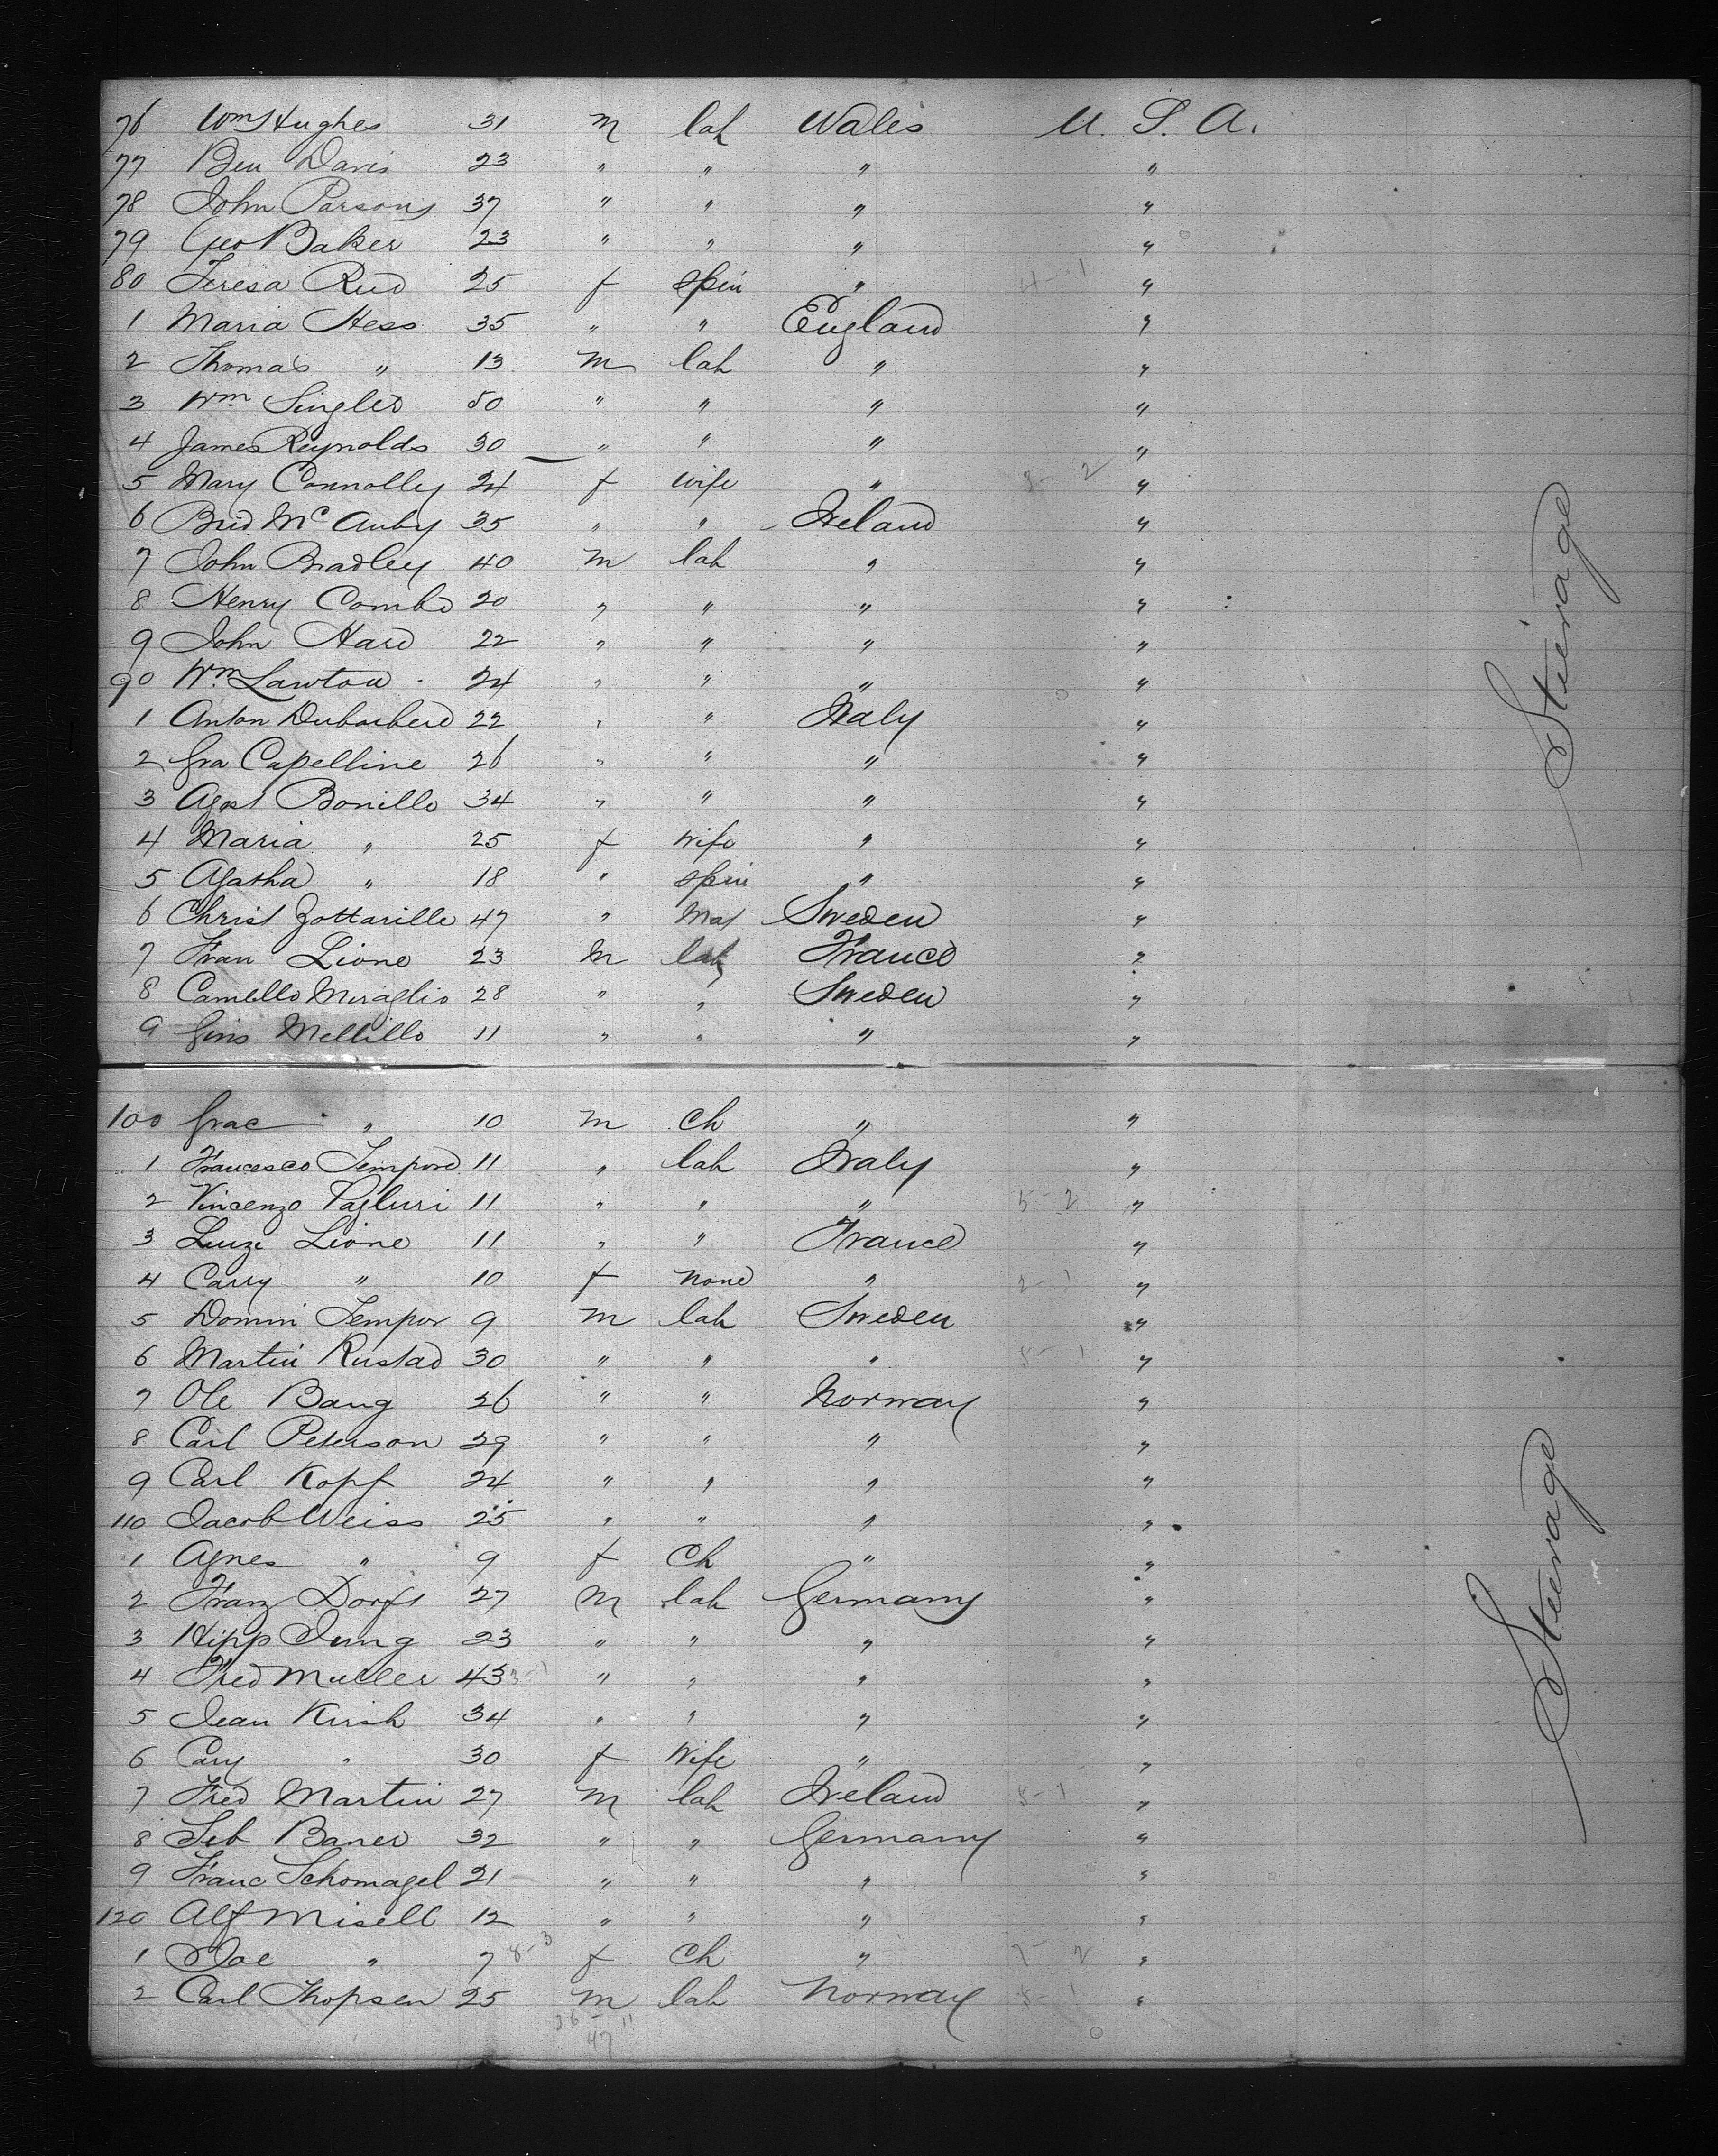 76 Wm Hughes 31 m lab Wales U. S. A.
77 Ben Davis 23 " " " "
78 John Parsons 37 " " " "
79 Geo Baker 23 " " " "
80 Teresa Reed 25 f spin " "
1 Maria Hess 35 " " England "
2 Thomas " 13 m lab " "
3 Wm 50 " " " "
4 James Reynolds 30 " " " "
5 Mary Connolly 24 f wife " "
6 Brid Mc 35 " " Ireland "
7 John Bradley 40 m lab " "
8 Henry Combs 20 " " " "
9 John Hard 22 " " " "
90 Wm Lawton 24 " " " "
1 Anton 22 " " Italy "
2 Gra Capelline 26 " " " "
3 Agst Bonillo 34 " " " "
4 Maria " 25 f wife " "
5 Agatha " 18 " spin " "
6 Christ Zottarille 47 " Sweden "
7 Fran Lione 23 m lab France "
8 Camello Miraglio 28 " " Sweden "
9 Gins Mellillo 11 " " " "
100 Grac " 10 m ch " "
1 Francesco 11 " lab Italy "
2 Vincenzo Pagluri 11 " " " "
3 Luigi Lione 11 " " France "
4 Carry " 10 f none " "
5 Domini Tempor 9 m lab Sweden "
6 Martin Rustad 30 " " " "
7 Ole Bang 26 " " Norway "
8 Carl Peterson 29 " " " "
9 Carl Kopf 24 " " " "
110 Jacob Weiss 25 " " " "
1 Agnes " 9 f ch " "
2 Franz Dorft 27 m lab Germany "
3 Hipp Jung 23 " " " "
4 Fred Muller 43 " " " "
5 Jean Kirsh 34 " " " "
6 Cary " 30 f wife " "
7 Fred Martin 27 m lab Ireland "
8 Seb Baner 32 " " Germany "
9 Franc Schomagel 21 " " " "
120 Alf Misell 12 " " " "
1 " 7 f ch " "
2 Carl Thopsen 25 m lab Norway "
Steerage
Steerage